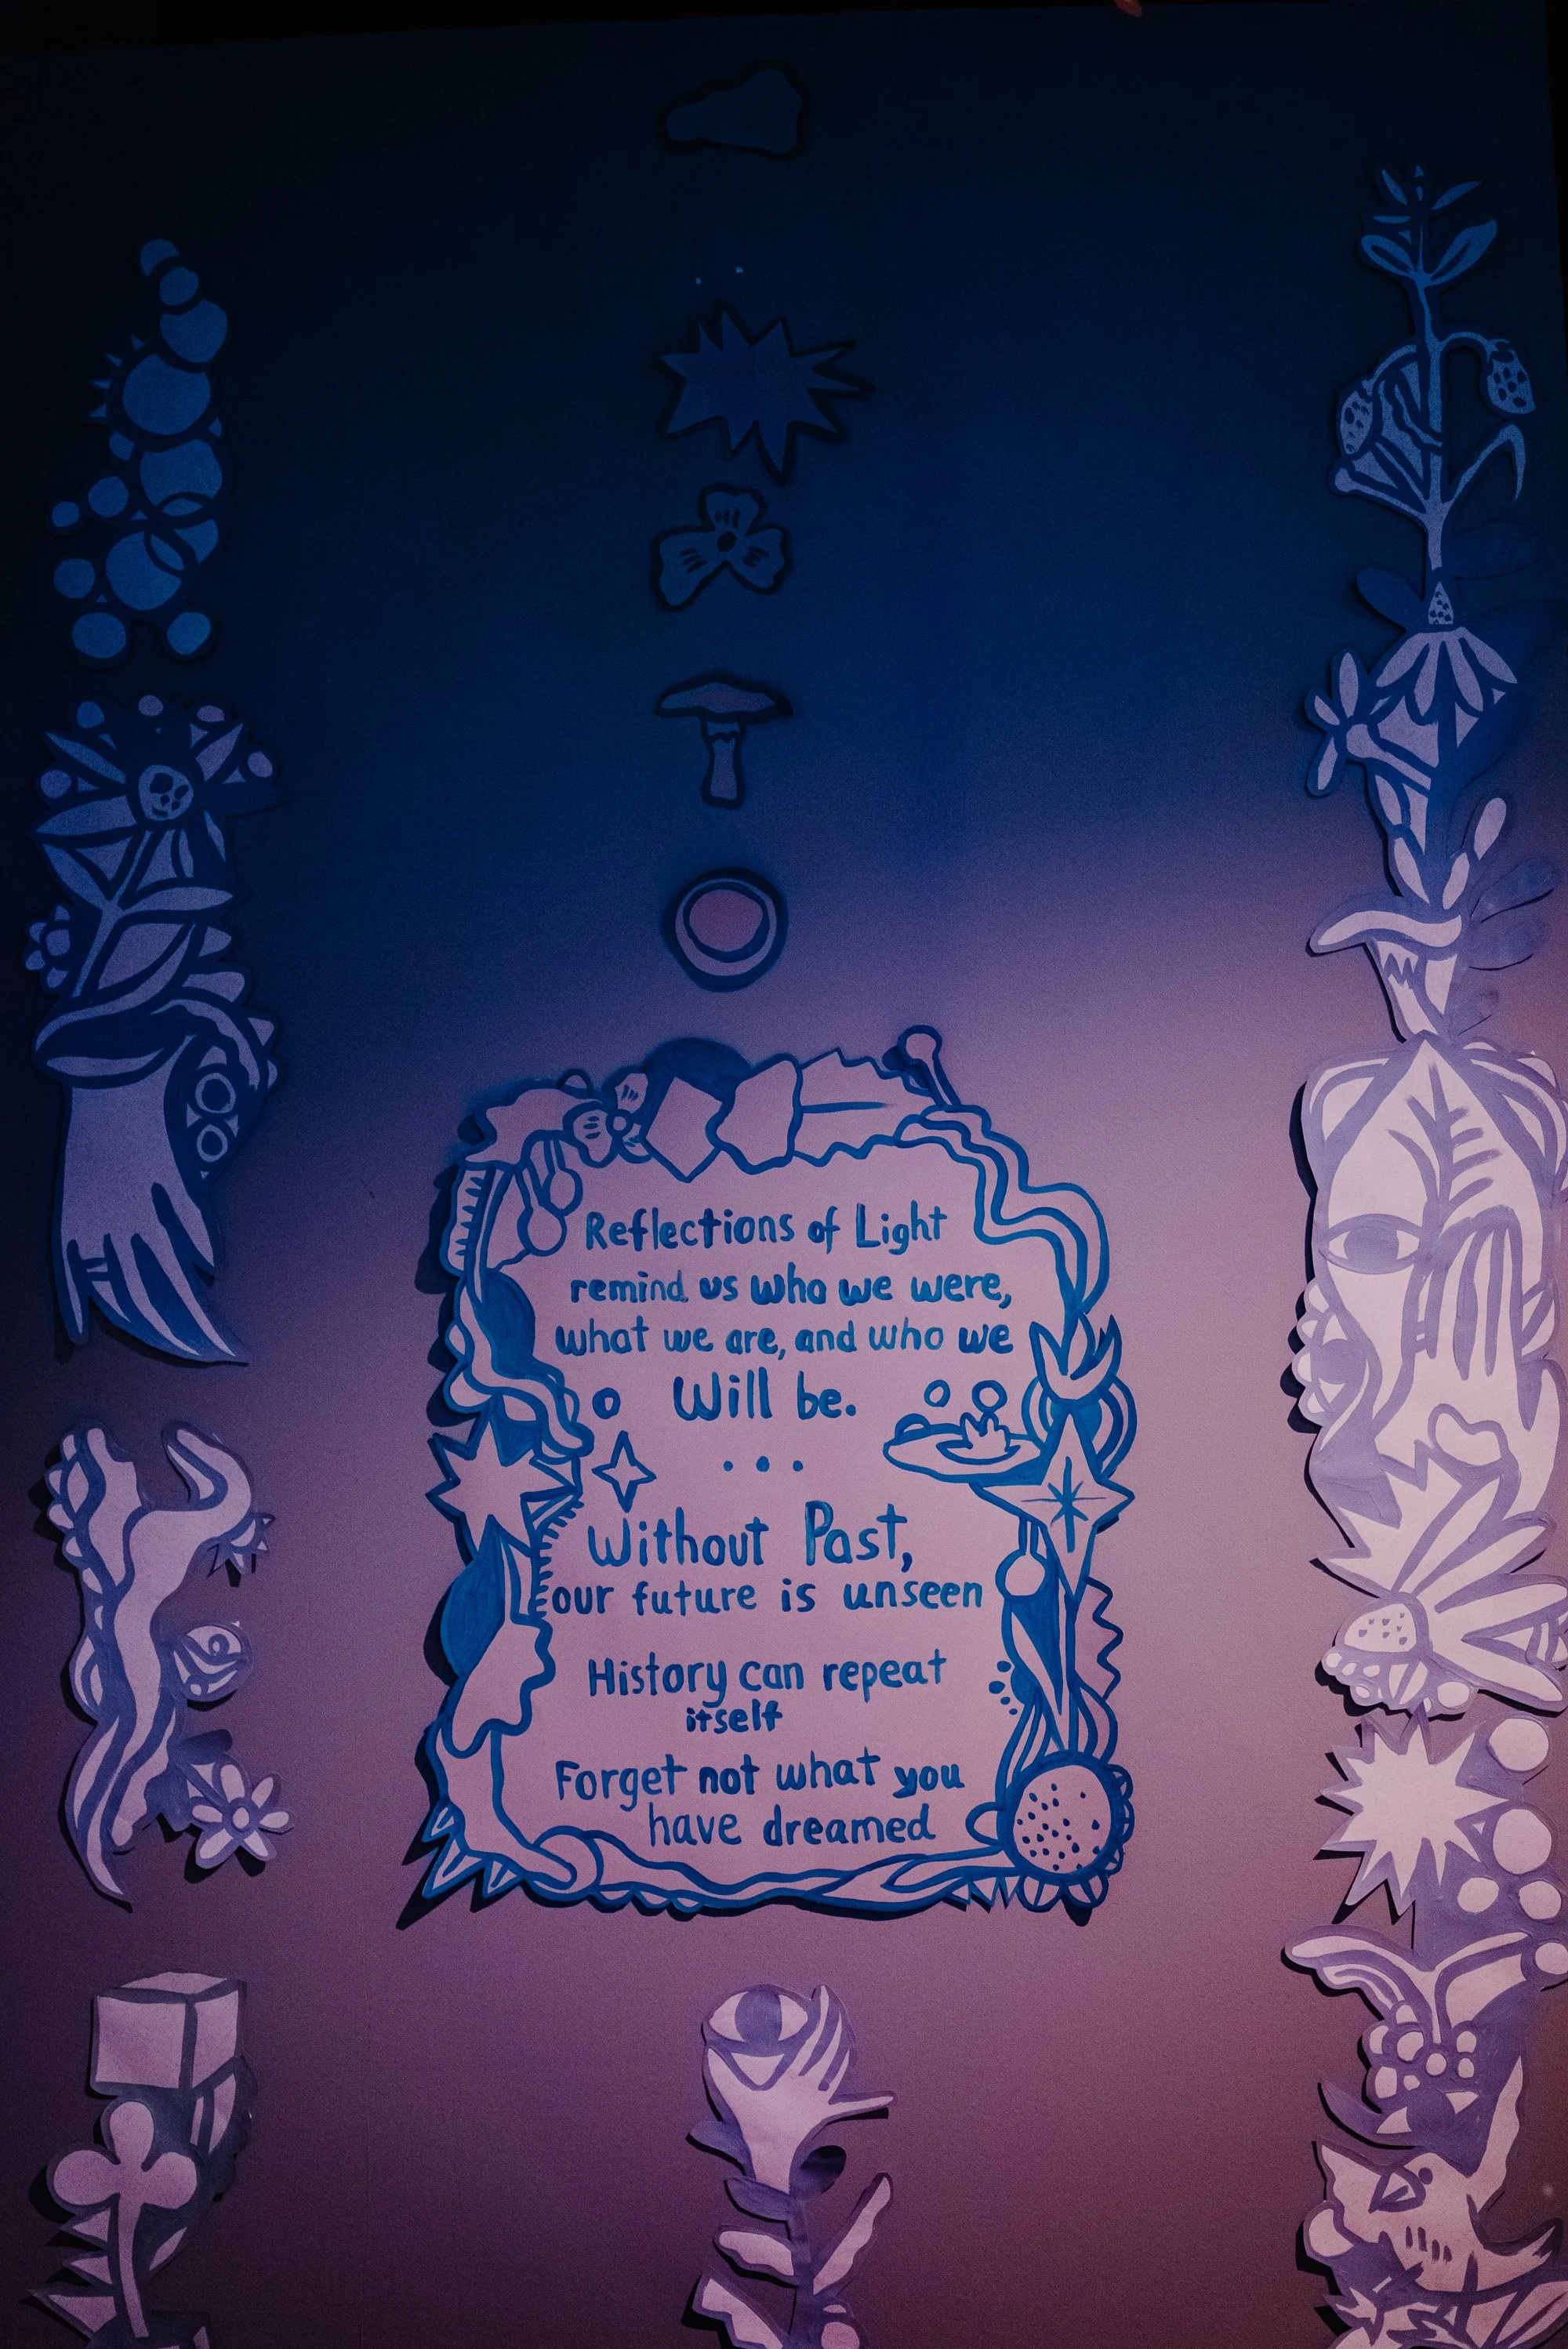 Reflections of Light
remind us who we were,
what we are, and who we
Will be.
...
Without Past,
our future is unseen
History can repeat
itself
Forget not what you
have dreamed